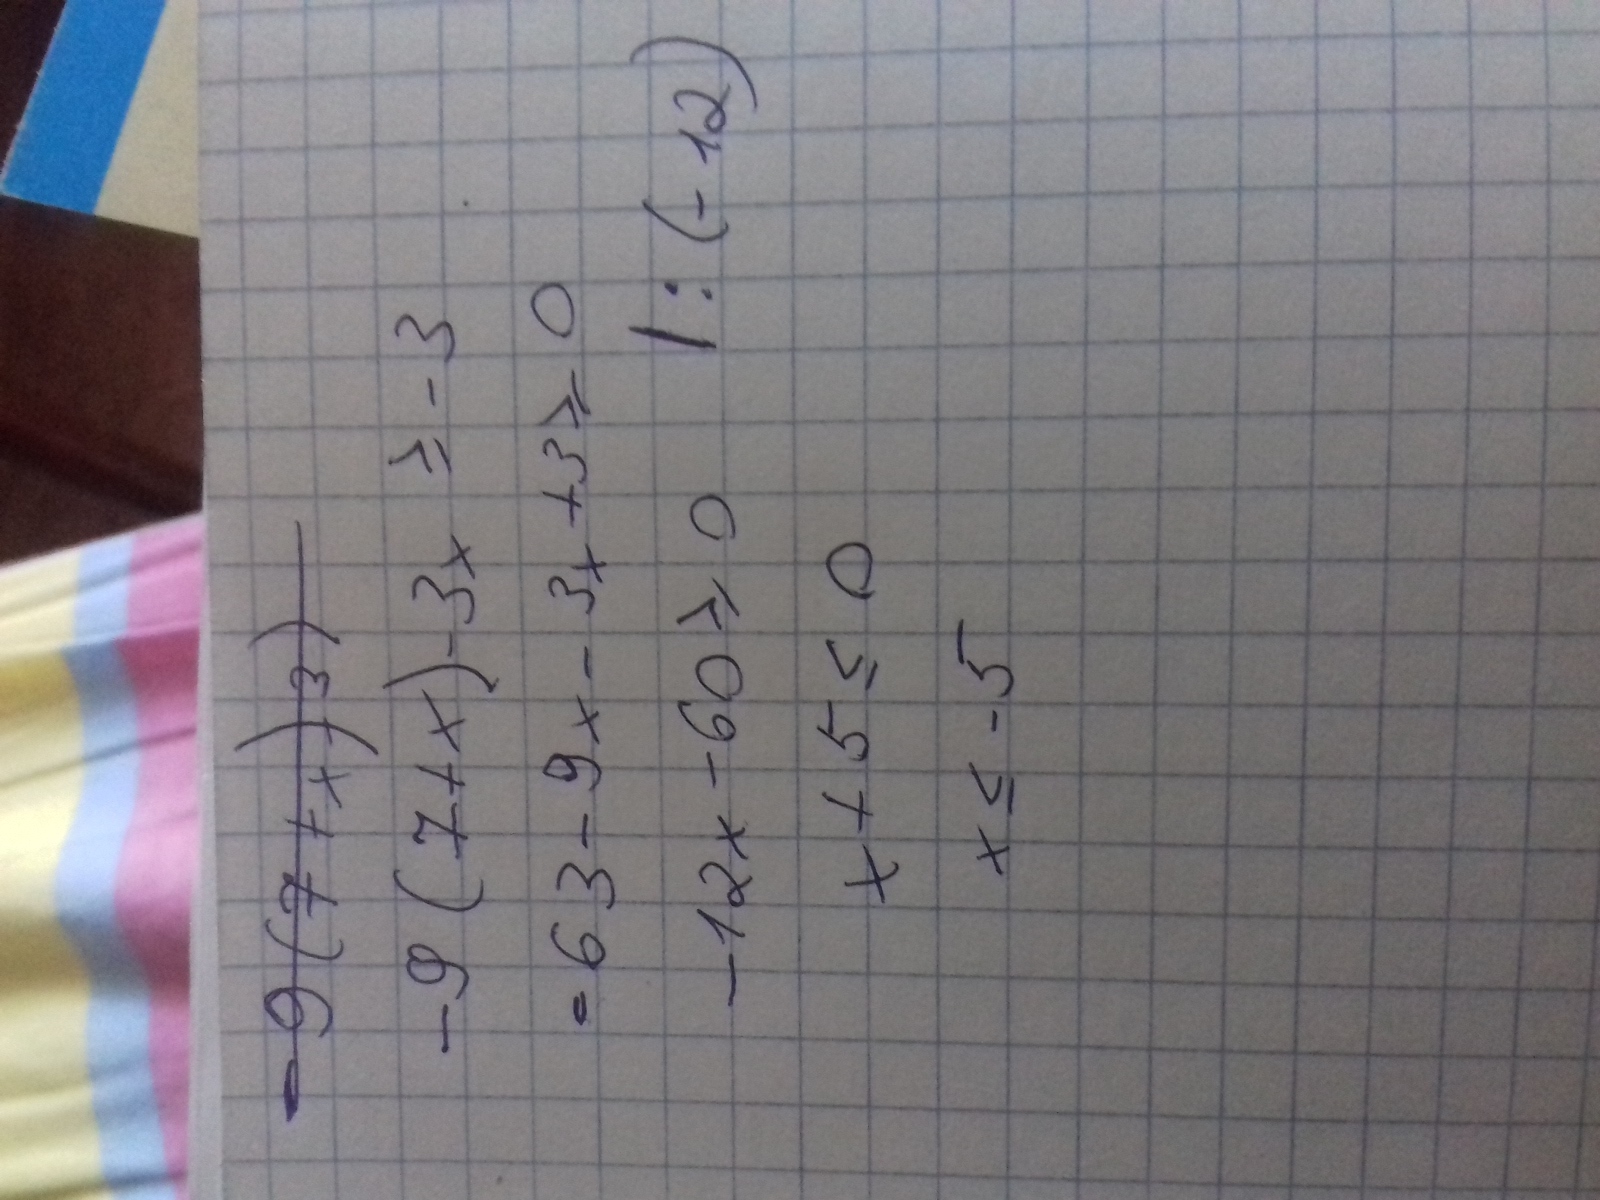 -9(7+x)-3)
-9(7+x)-3x ≥ -3
-63-9x-3x+3≥0
-12x-60≥0 |:(-12)
x+5≤0
x≤-5